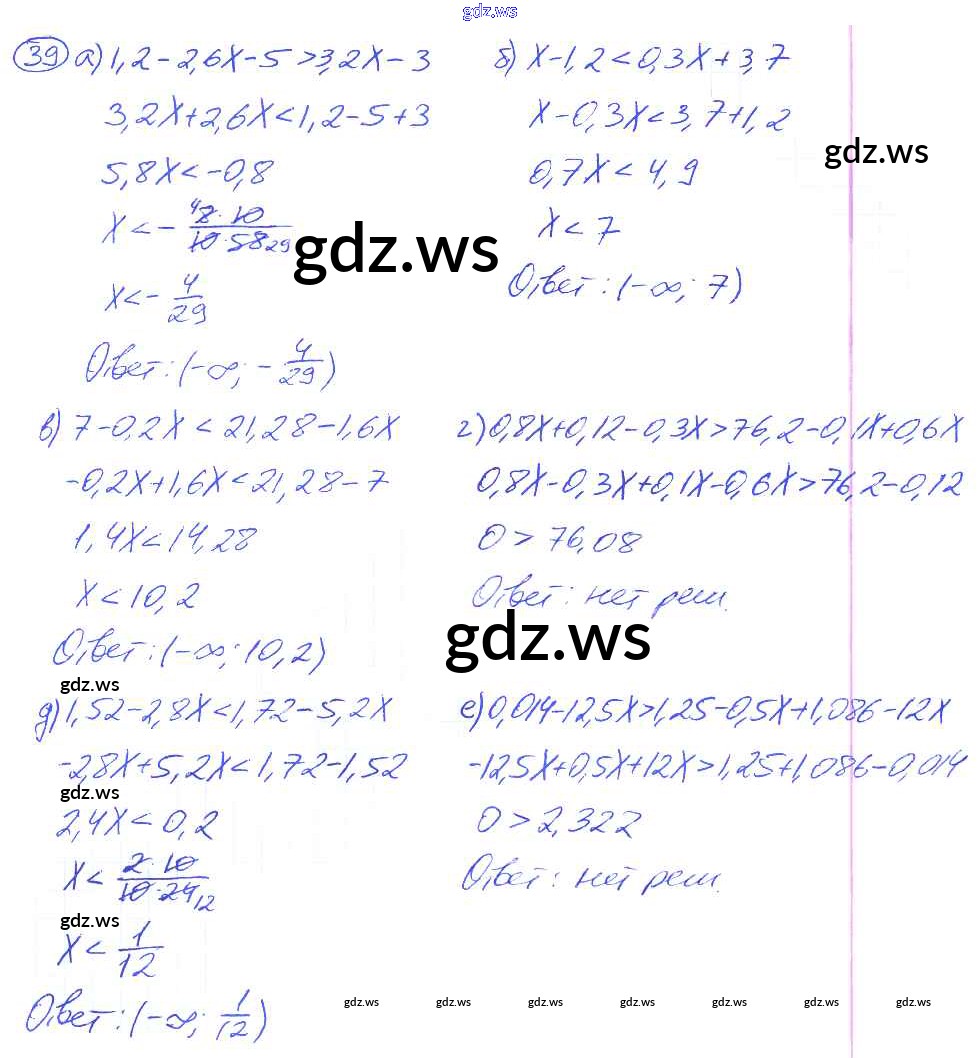 gdz.ws
39 а) 1,2-2,6x-5>3,2x-3
3,2x+2,6x<1,2-5+3
5,8x<-0,8
x<- 4 8·10 / 10·58 29
x<- 4/29
Ответ: (-∞; - 4/29)
б) x-1,2<0,3x+3,7
x-0,3x<3,7+1,2
gdz.ws
0,7x<4,9
x<7
gdz.ws
Ответ: (-∞; 7)
в) 7-0,2x<21,28-1,6x
-0,2x+1,6x<21,28-7
1,4x<14,28
x<10,2
Ответ: (-∞; 10,2)
г) 0,8x+0,12-0,3x>76,2-0,1x+0,6x
0,8x-0,3x+0,1x-0,6x>76,2-0,12
0>76,08
Ответ: нет реш.
gdz.ws
gdz.ws
д) 1,52-2,8x<1,72-5,2x
-2,8x+5,2x<1,72-1,52
gdz.ws
2,4x<0,2
x< 2·10 / 10·24 12
gdz.ws
x< 1/12
Ответ: (-∞; 1/12)
е) 0,014-12,5x>1,25-0,5x+1,086-12x
-12,5x+0,5x+12x>1,25+1,086-0,014
0>2,322
Ответ: нет реш.
gdz.ws gdz.ws gdz.ws gdz.ws gdz.ws gdz.ws gdz.ws